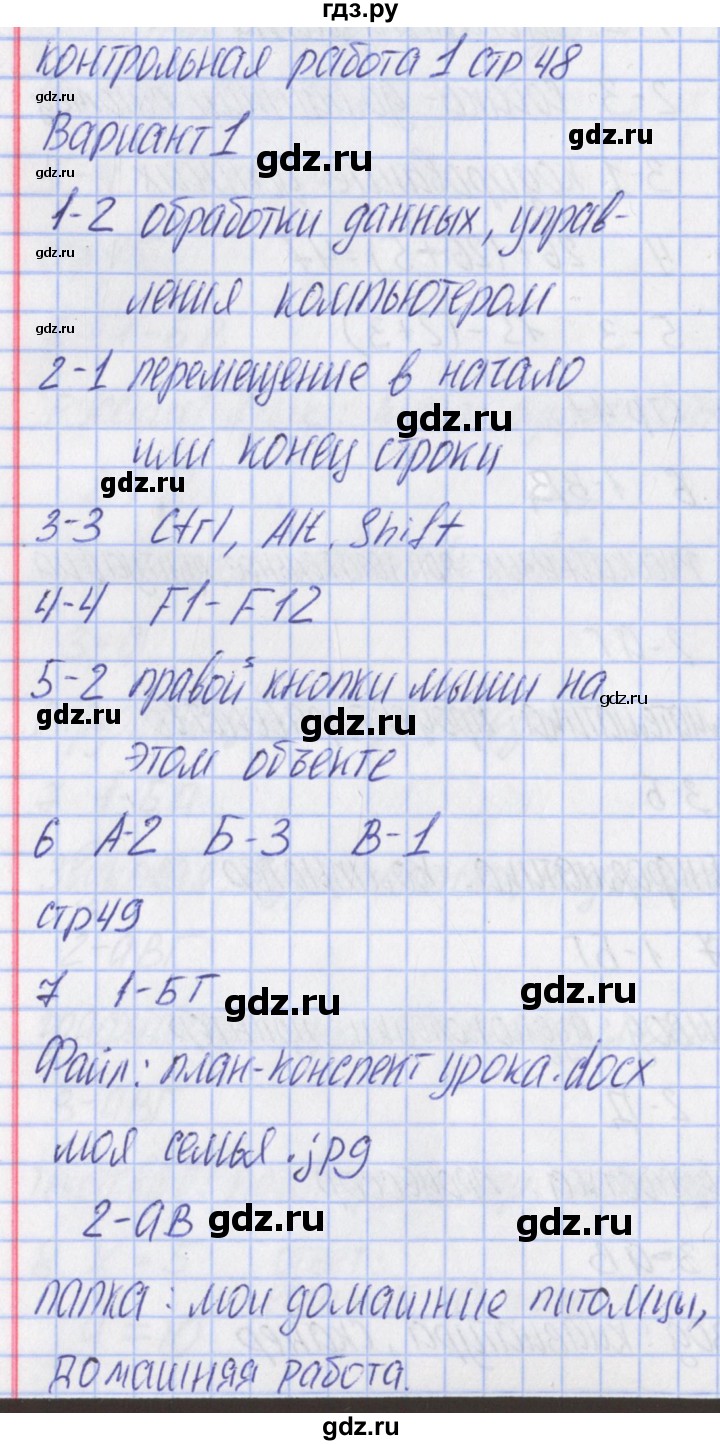 гдз.ру
контрольная работа 1 стр 48
gdz.ru
gdz.ru
Вариант 1
gdz.ru
gdz.ru
1-2 обработки данных, управ-
gdz.ru
ления компьютером
gdz.ru
2-1 перемещение в начало
gdz.ru
или конец строки
gdz.ru
3-3 Ctrl, Alt, Shift
4-4 F1-F12
5-2 правой кнопки мыши на
gdz.ru
gdz.ru
gdz.ru
этом объекте
6 А-2 Б-3 В-1
стр 49
7 1-БГ
gdz.ru
gdz.ru
Файл: план-конспект урока.docx
моя семья.jpg
2-АВ
gdz.ru
gdz.ru
папка: мои домашние питомцы,
домашняя работа.
gdz.ru